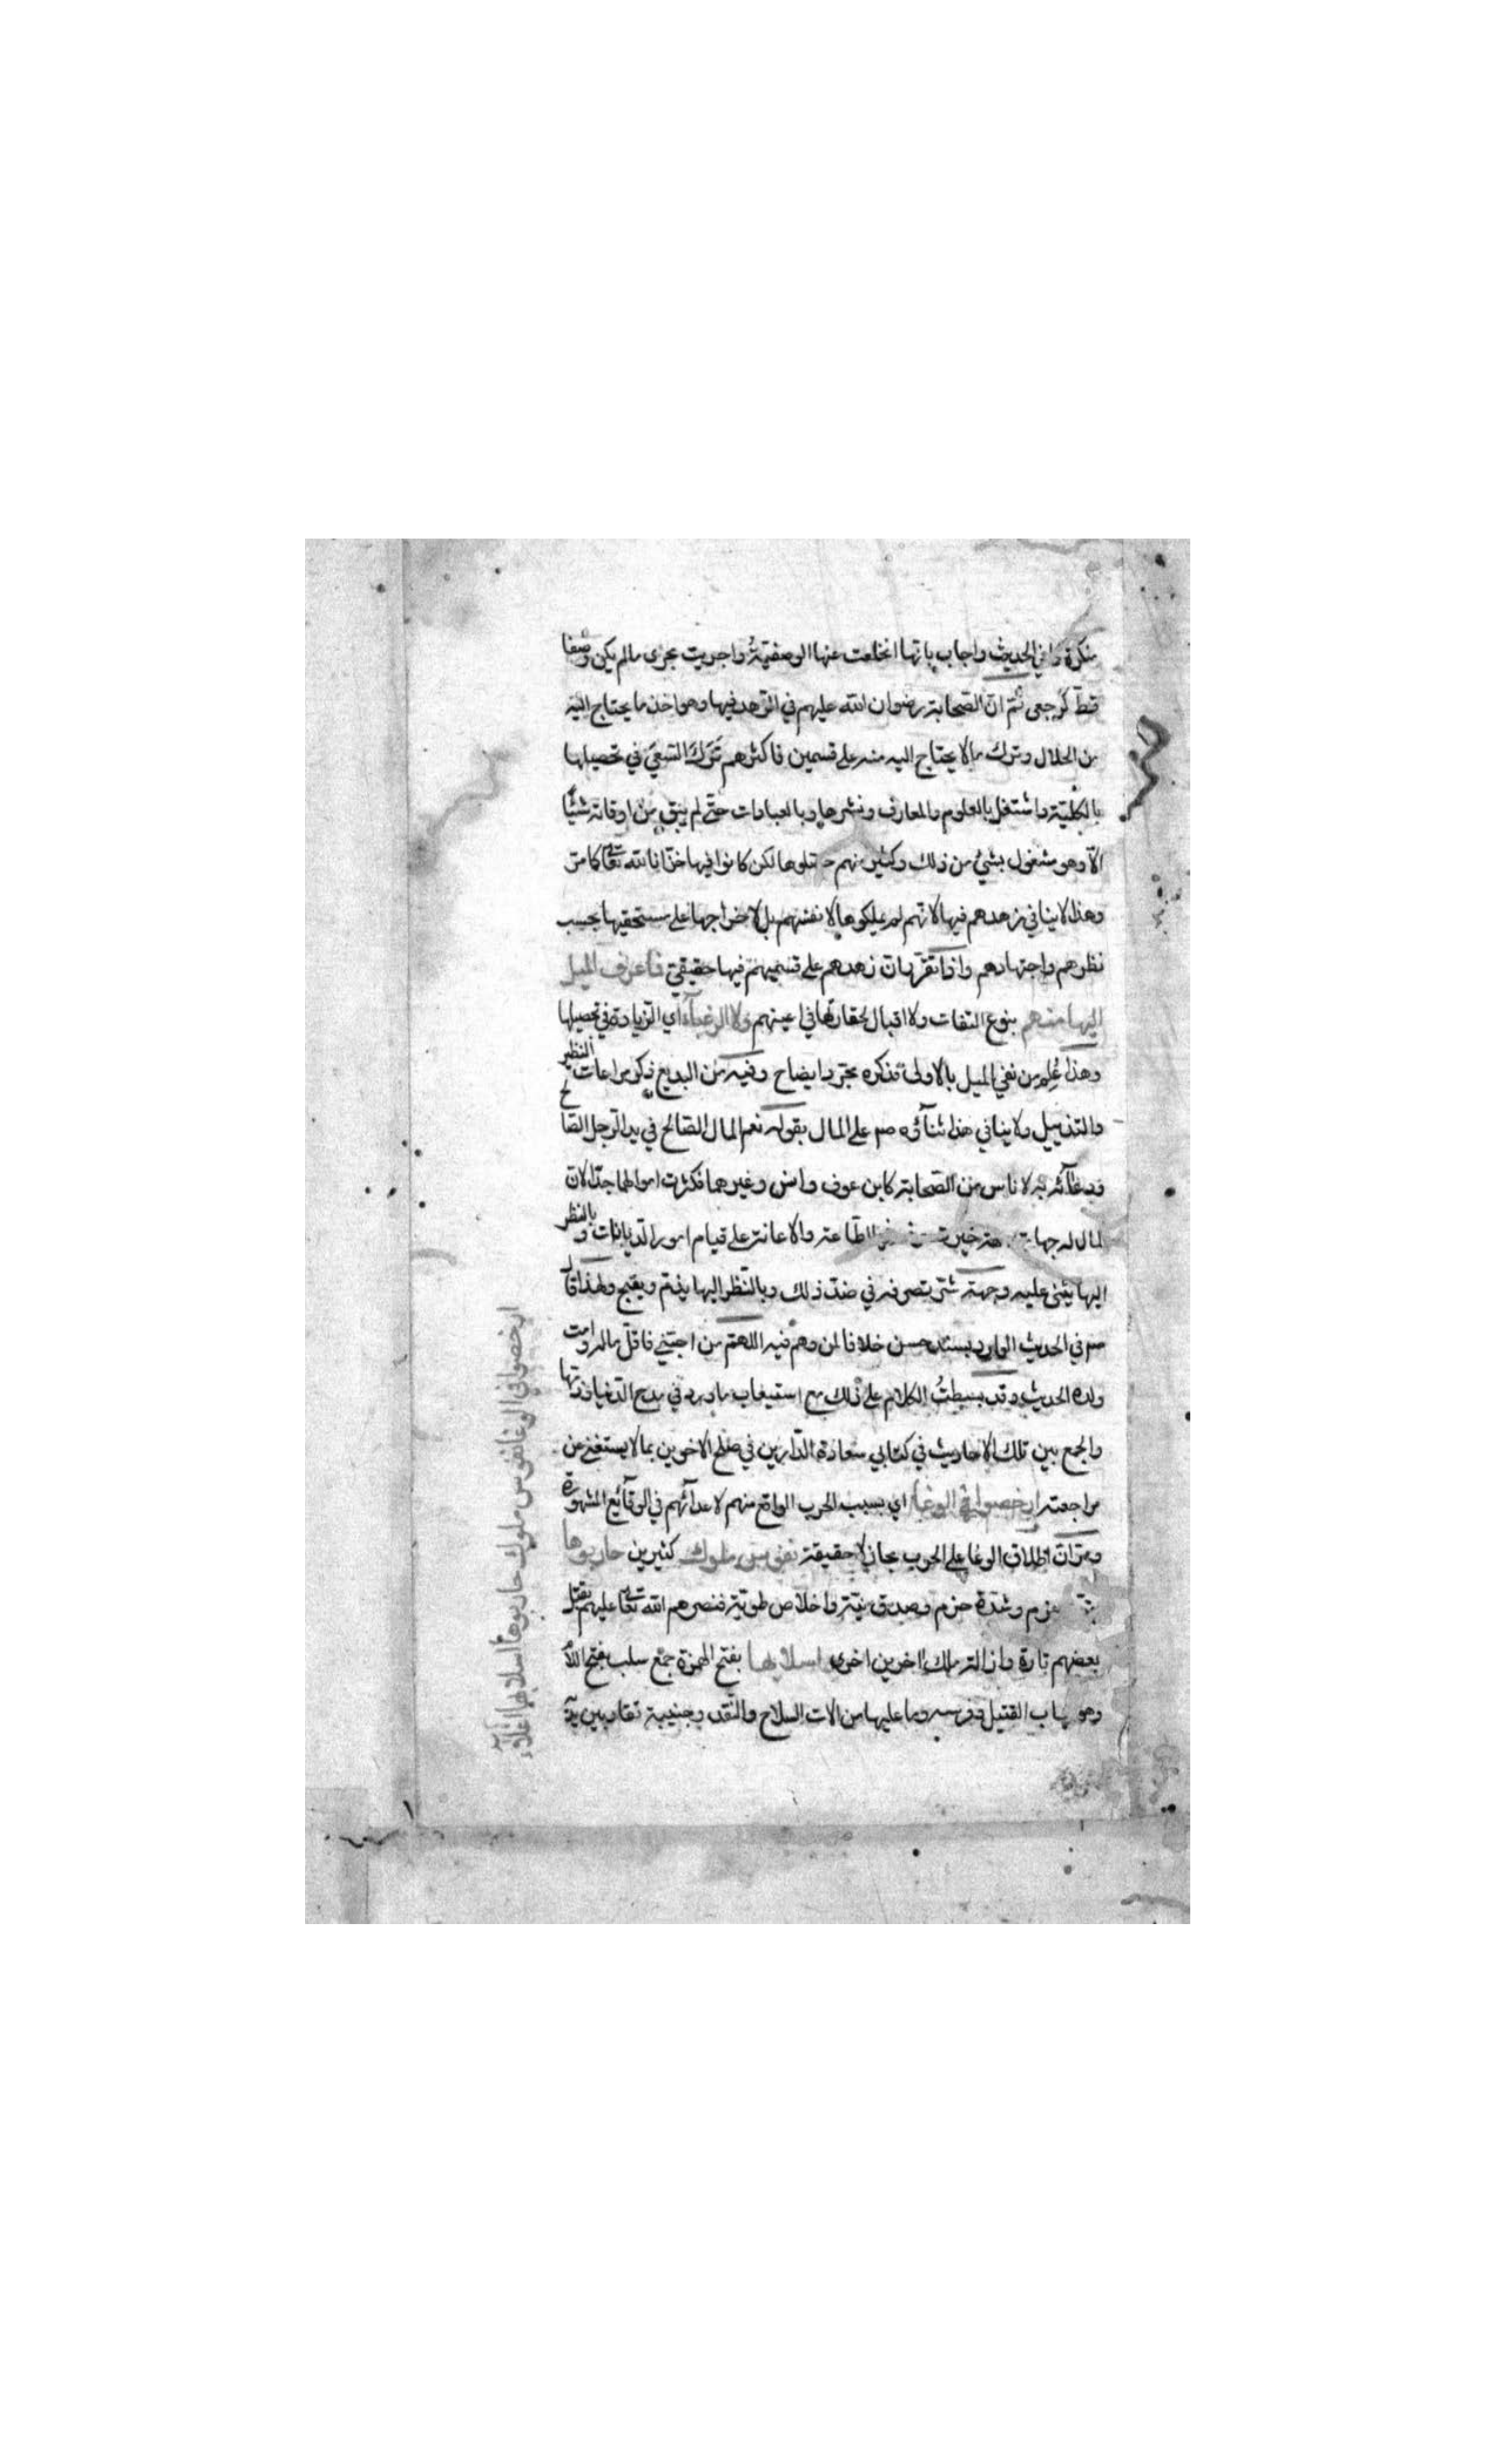 منكرة كما في الحديث واجاب بانها انخلعت عنها الوصفية واجريت مجرى مالم يكن وصفا
قط كرجعى ثم ان الصحابة رضوان الله عليهم في الزهد فيها وهو اخذ ما يحتاج اليه
من الحلال وترك ما لا يحتاج اليه منه على قسمين فاكثرهم ترك السعي في تحصيلها
بالكلية واشتغل بالعلوم والمعارف ونشرها وبالعبادات حتى لم يبق من اوقاته شيئا
الا وهو مشغول بشئ من ذلك وكثير منهم حصلوها لكن كانوا فيها خزانا لله تعالى كما مر
وهذا لا ينافي زهدهم فيها لانهم لم يملكوها لانفسهم بل لاخراجها على مستحقيها بحسب
نظرهم واجتهادهم واذا تقرر ان زهدهم على قسميهم فيها حقيقي فما عرف الميل
اليها منهم بنوع التفات ولا اقبال لحقارتها في اعينهم ولا الرغباء اي الزيادة في تحصيلها
وهذا علم من نفي الميل بالاولى فذكره مجرد ايضاح وفيه من البديع ذكر مراعات النظير
والتذييل ولا ينافي هذا ثنائه صم على المال بقوله نعم المال الصالح في يد الرجل الصالح
ودعائه به لاناس من الصحابة كابن عوف وانس وغيرهما فكثرت اموالهما جدا لان
المال له جهات جهة خير الطاعة والاعانة على قيام امور الديانات وبالنظر
اليها يثنى عليه وجهة شر بتصرفه في ضد ذلك وبالنظر اليها يذم ويقبح ولهذا قال
صم في الحديث الوارد بسند حسن خلافا لمن وهم فيه اللهم من احبني فاقل ماله وامت
ولده الحديث وقد بسطت الكلام على ذلك مع استيعاب ما ورد في مدح الدنيا وذمها
والجمع بين تلك الاحاديث في كتابي سعادة الدارين في صلح الاخوين بما لا يستغنى عن
مراجعته ارخصوا في الوغا اي بسبب الحرب الواقع منهم لاعدائهم في الوقائع المشهورة
ومر ان اطلاق الوغا على الحرب مجاز لا حقيقة نفوس ملوك كثيرين حاربوها
عزم وشدة حزم وصدق نية واخلاص طوية فنصرهم الله تعالى عليهم بقتل
بعضهم تارة وازالة ملك اخرين اخرى اسلابها بفتح الهمزة جمع سلب بفتح اللام
وهو ثياب القتيل وفرسه وما عليها من الات السلاح والنقد وجنيبة تقاد بين يديه
ارخصوا في الوغا نفوس ملوك حاربوها اسلابها اغلاء